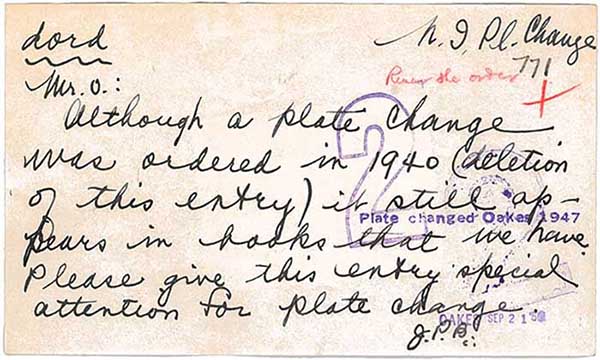 dord
N. I. Pl. Change
771
Renew the order
Mr. O.:
Although a plate change
was ordered in 1940 (deletion
of this entry) it still ap-
Plate changed Oakes 1947
pears in books that we have.
Please give this entry special
attention for plate change.
OAKES SEP 21
J.P.B.
2